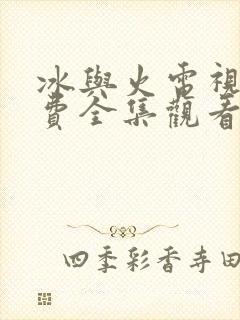 冰與火電視
費全集觀看
四季彩香寺田